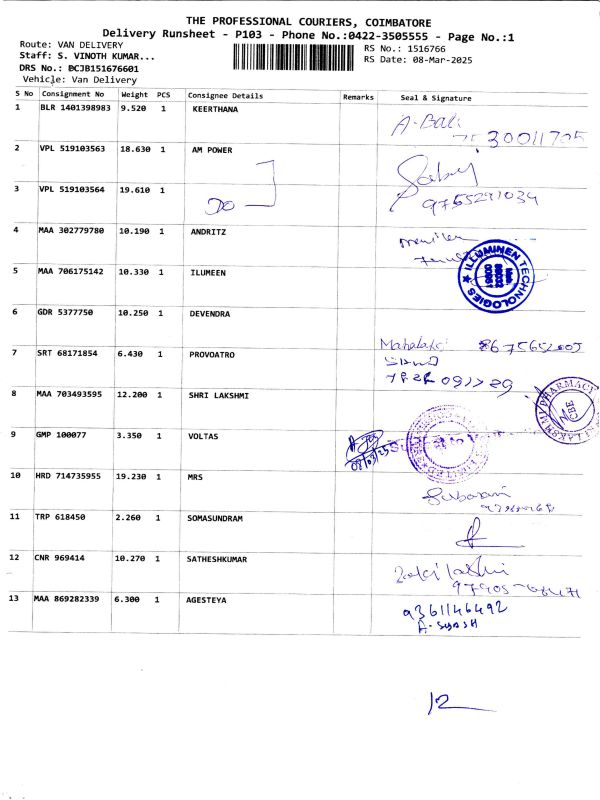 THE PROFESSIONAL COURIERS, COIMBATORE
Delivery Runsheet - P103 - Phone No.:0422-3505555 - Page No.:1
Route: VAN DELIVERY
Staff: S. VINOTH KUMAR...
DRS No.: DCJB151676601
Vehicle: Van Delivery
RS No.: 1516766
RS Date: 08-Mar-2025
S No Consignment No Weight PCS Consignee Details Remarks Seal & Signature
1 BLR 1401398983 9.520 1 KEERTHANA
A-Bali
2 VPL 519103563 18.630 1 AM POWER
3 VPL 519103564 19.610 1
DO
9755291034
4 MAA 302779780 10.190 1 ANDRITZ
5 MAA 706175142 10.330 1 ILUMEEN
ILLUMINEN TECHNOLOGIES
6 GDR 5377750 10.250 1 DEVENDRA
7 SRT 68171854 6.430 1 PROVOATRO
8 MAA 703493595 12.200 1 SHRI LAKSHMI
PHARMACY
CBE
9 GMP 100077 3.350 1 VOLTAS
08/03/25
10 HRD 714735955 19.230 1 MRS
11 TRP 618450 2.260 1 SOMASUNDRAM
12 CNR 969414 10.270 1 SATHESHKUMAR
13 MAA 869282339 6.300 1 AGESTEYA
9361146492
12